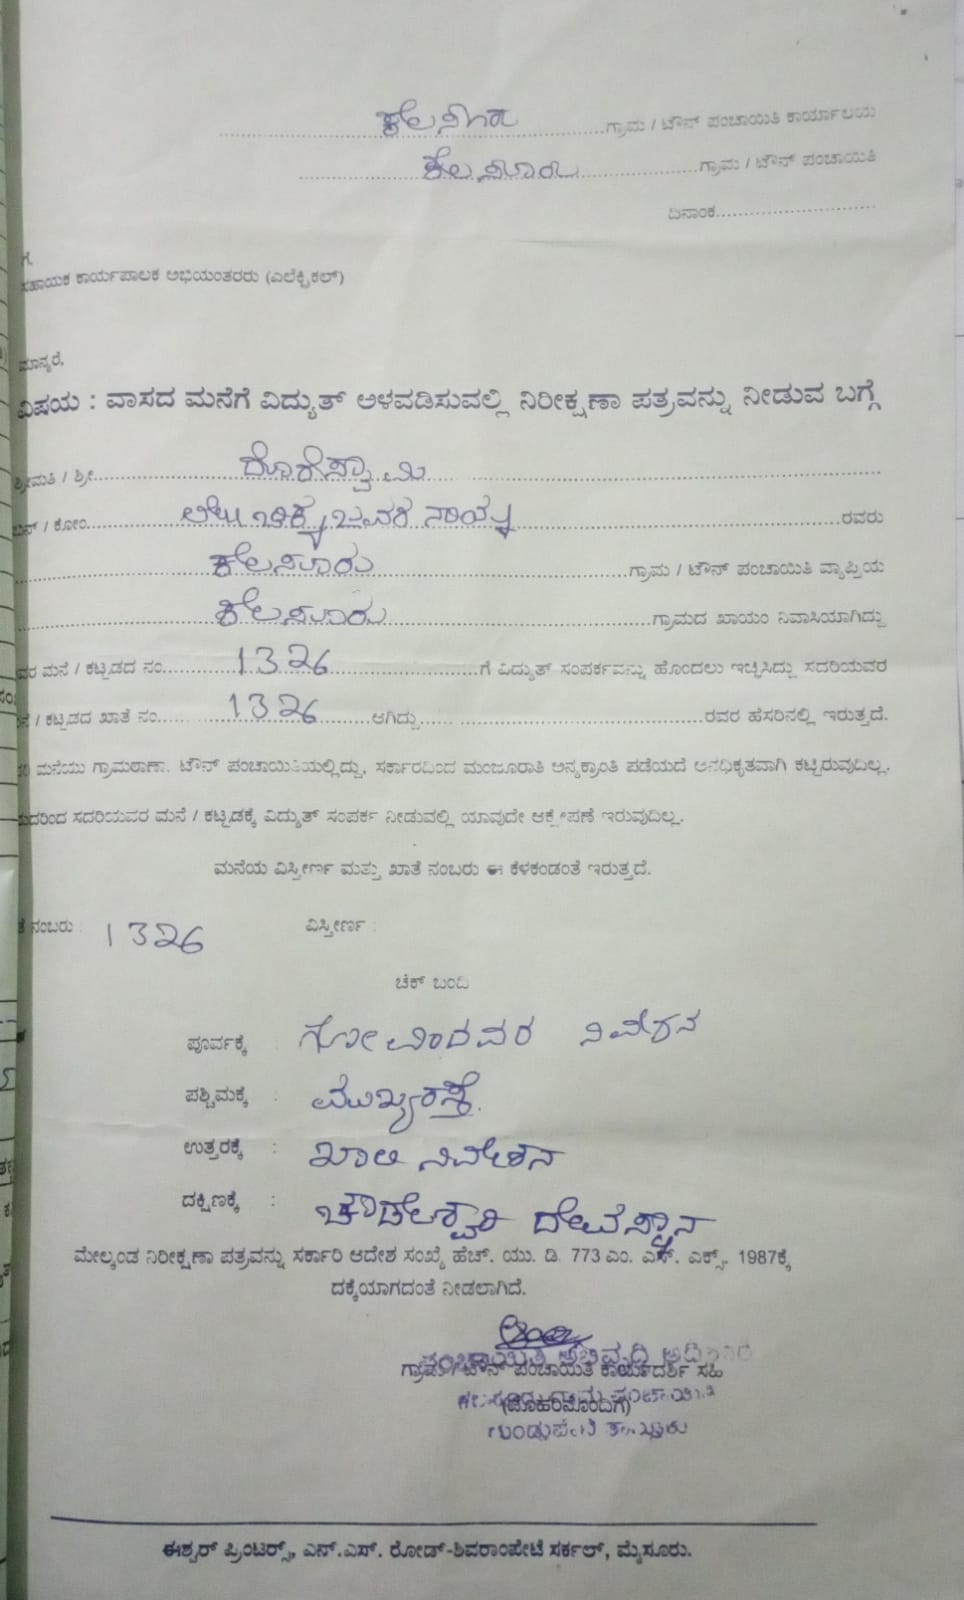 ಕೆಲಸೂರು ............ಗ್ರಾಮ / ಟೌನ್ ಪಂಚಾಯಿತಿ ಕಾರ್ಯಾಲಯ
ಕೆಲಸೂರು ............ಗ್ರಾಮ / ಟೌನ್ ಪಂಚಾಯಿತಿ
ದಿನಾಂಕ............
ಗೆ,
ಸಹಾಯಕ ಕಾರ್ಯಪಾಲಕ ಅಭಿಯಂತರರು (ಎಲೆಕ್ಟ್ರಿಕಲ್)
ಮಾನ್ಯರೆ,
ವಿಷಯ : ವಾಸದ ಮನೆಗೆ ವಿದ್ಯುತ್ ಅಳವಡಿಸುವಲ್ಲಿ ನಿರೀಕ್ಷಣಾ ಪತ್ರವನ್ನು ನೀಡುವ ಬಗ್ಗೆ
ಶ್ರೀಮತಿ / ಶ್ರೀ ದೊರೆಸ್ವಾಮಿ
ಬಿನ್ / ಕೋಂ. ಲೇಟ್ ಚಿಕ್ಕಬಸವ ನಾಯ್ಕ ರವರು
ಕೆಲಸೂರು ಗ್ರಾಮ / ಟೌನ್ ಪಂಚಾಯಿತಿ ವ್ಯಾಪ್ತಿಯ
ಕೆಲಸೂರು ಗ್ರಾಮದ ಖಾಯಂ ನಿವಾಸಿಯಾಗಿದ್ದು
ವರ ಮನೆ / ಕಟ್ಟಡದ ನಂ. 1326 ಗೆ ವಿದ್ಯುತ್ ಸಂಪರ್ಕವನ್ನು ಹೊಂದಲು ಇಚ್ಛಿಸಿದ್ದು ಸದರಿಯವರ
ನೆ / ಕಟ್ಟಡದ ಖಾತೆ ನಂ. 1326 ಆಗಿದ್ದು ............ ರವರ ಹೆಸರಿನಲ್ಲಿ ಇರುತ್ತದೆ.
ರಿ ಮನೆಯು ಗ್ರಾಮಠಾಣಾ. ಟೌನ್ ಪಂಚಾಯಿತಿಯಲ್ಲಿದ್ದು, ಸರ್ಕಾರದಿಂದ ಮಂಜೂರಾತಿ ಅನ್ಯಕ್ರಾಂತಿ ಪಡೆಯದೆ ಅನಧಿಕೃತವಾಗಿ ಕಟ್ಟಿರುವುದಿಲ್ಲ.
ದರಿಂದ ಸದರಿಯವರ ಮನೆ / ಕಟ್ಟಡಕ್ಕೆ ವಿದ್ಯುತ್ ಸಂಪರ್ಕ ನೀಡುವಲ್ಲಿ ಯಾವುದೇ ಆಕ್ಷೇಪಣೆ ಇರುವುದಿಲ್ಲ.
ಮನೆಯ ವಿಸ್ತೀರ್ಣ ಮತ್ತು ಖಾತೆ ನಂಬರು ಈ ಕೆಳಕಂಡಂತೆ ಇರುತ್ತದೆ.
ತೆ ನಂಬರು : 1326 ವಿಸ್ತೀರ್ಣ :
ಚೆಕ್ ಬಂದಿ
ಪೂರ್ವಕ್ಕೆ : ಗೋವಿಂದವರ ನಿವೇಶನ
ಪಶ್ಚಿಮಕ್ಕೆ : ಮುಖ್ಯರಸ್ತೆ.
ಉತ್ತರಕ್ಕೆ : ಖಾಲಿ ನಿವೇಶನ
ದಕ್ಷಿಣಕ್ಕೆ : ಚೌಡೇಶ್ವರಿ ದೇವಸ್ಥಾನ
ಮೇಲ್ಕಂಡ ನಿರೀಕ್ಷಣಾ ಪತ್ರವನ್ನು ಸರ್ಕಾರಿ ಆದೇಶ ಸಂಖ್ಯೆ ಹೆಚ್. ಯು. ಡಿ. 773 ಎಂ. ಎಸ್. ಎಕ್ಸ್. 1987ಕ್ಕೆ
ದಕ್ಕೆಯಾಗದಂತೆ ನೀಡಲಾಗಿದೆ.
ಪಂಚಾಯಿತಿ ಅಭಿವೃದ್ಧಿ ಅಧಿಕಾರಿ
ಗ್ರಾಮ / ಟೌನ್ ಪಂಚಾಯಿತಿ ಕಾರ್ಯದರ್ಶಿ ಸಹಿ
ಗ್ರಾಮ ಪಂಚಾಯಿತಿ
(ಮೊಹರಿನೊಂದಿಗೆ)
ಗುಂಡ್ಲುಪೇಟೆ ತಾಲ್ಲೂಕು
ಈಶ್ವರ್ ಪ್ರಿಂಟರ್ಸ್, ಎನ್.ಎಸ್. ರೋಡ್-ಶಿವರಾಂಪೇಟೆ ಸರ್ಕಲ್, ಮೈಸೂರು.